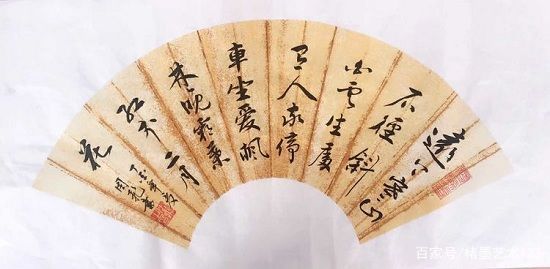 遠上寒山
石徑斜
白雲生處
有人家停
車坐愛楓
林晚霜葉
紅於二月
花
丁酉年夏
周
百家号/楮墨艺术